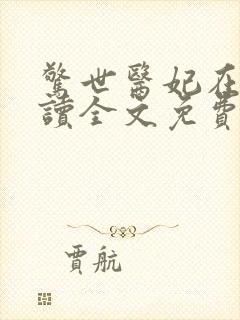 驚世醫妃在
讀全文免費
賈航